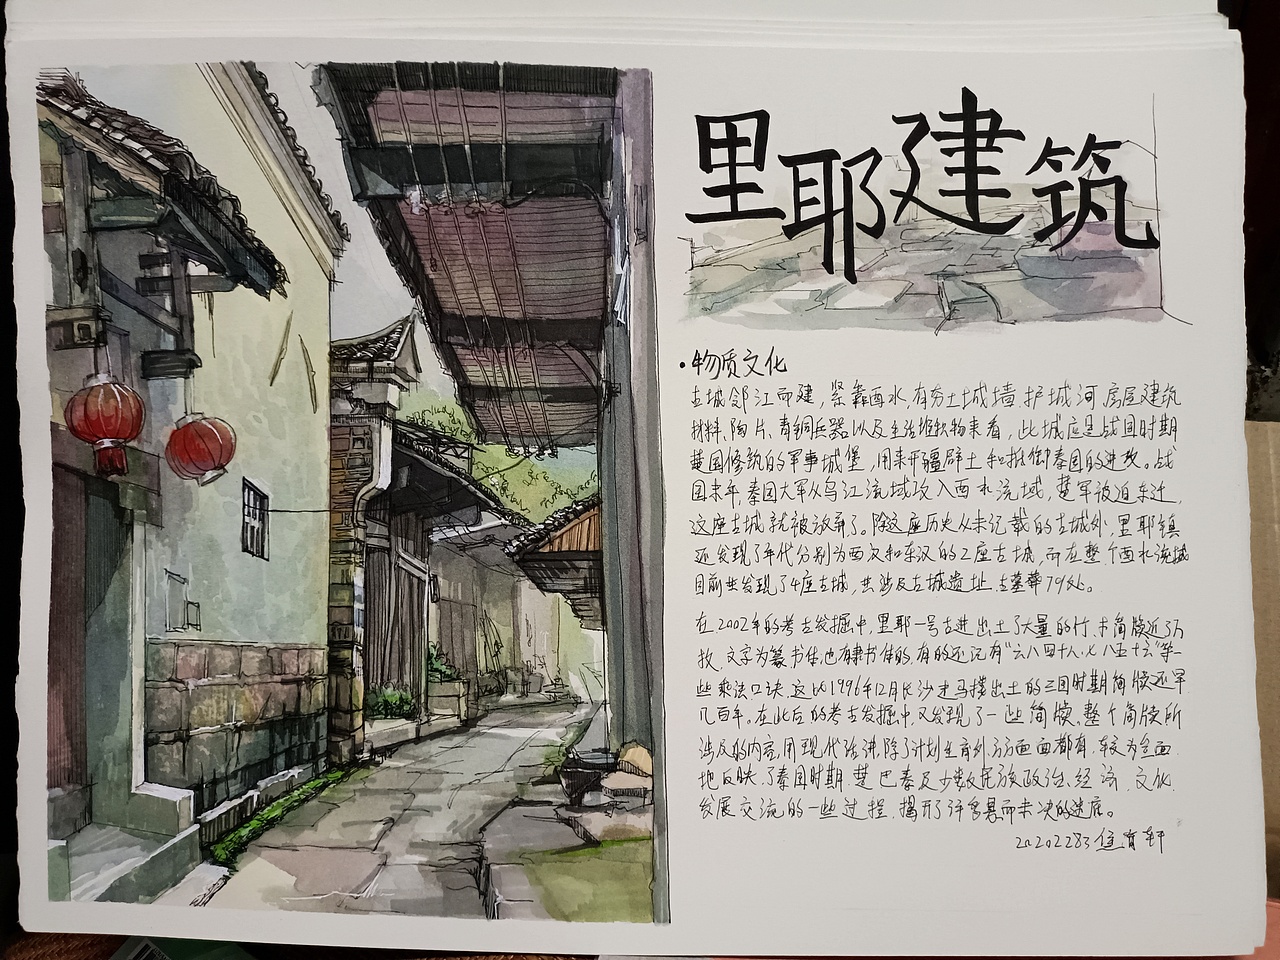 里耶建筑
·物质文化
古城邻江而建,紧靠酉水,有夯土城墙、护城河、房屋建筑
材料、陶片、青铜兵器以及生活堆积物来看,此城应是战国时期
楚国修筑的军事城堡,用来开疆辟土和抵御秦国的进攻。战
国末年,秦国大军从乌江流域攻入酉水流域,楚军被迫东迁,
这座古城就被放弃了。除这座历史从未记载的古城外,里耶镇
还发现了年代分别为西汉和东汉的2座古城,而在整个酉水流域
目前共发现了4座古城,共涉及古城遗址、古墓葬79处。
在2002年的考古发掘中,里耶一号古井出土了大量的竹、木简牍近3万
枚,文字为篆书体,也有隶书体的,有的还记有“六八四十八,七八五十六”等一
些乘法口诀,这比1996年12月长沙走马楼出土的三国时期简牍还早
几百年。在此后的考古发掘中,又发现了一些简牍,整个简牍所
涉及的内容,用现代话讲,除了计划生育外,方方面面都有,较为全面
地反映了秦国时期楚、巴、秦及少数民族政治、经济、文化
发展交流的一些过程,揭示了许多悬而未决的迷底。
20202283